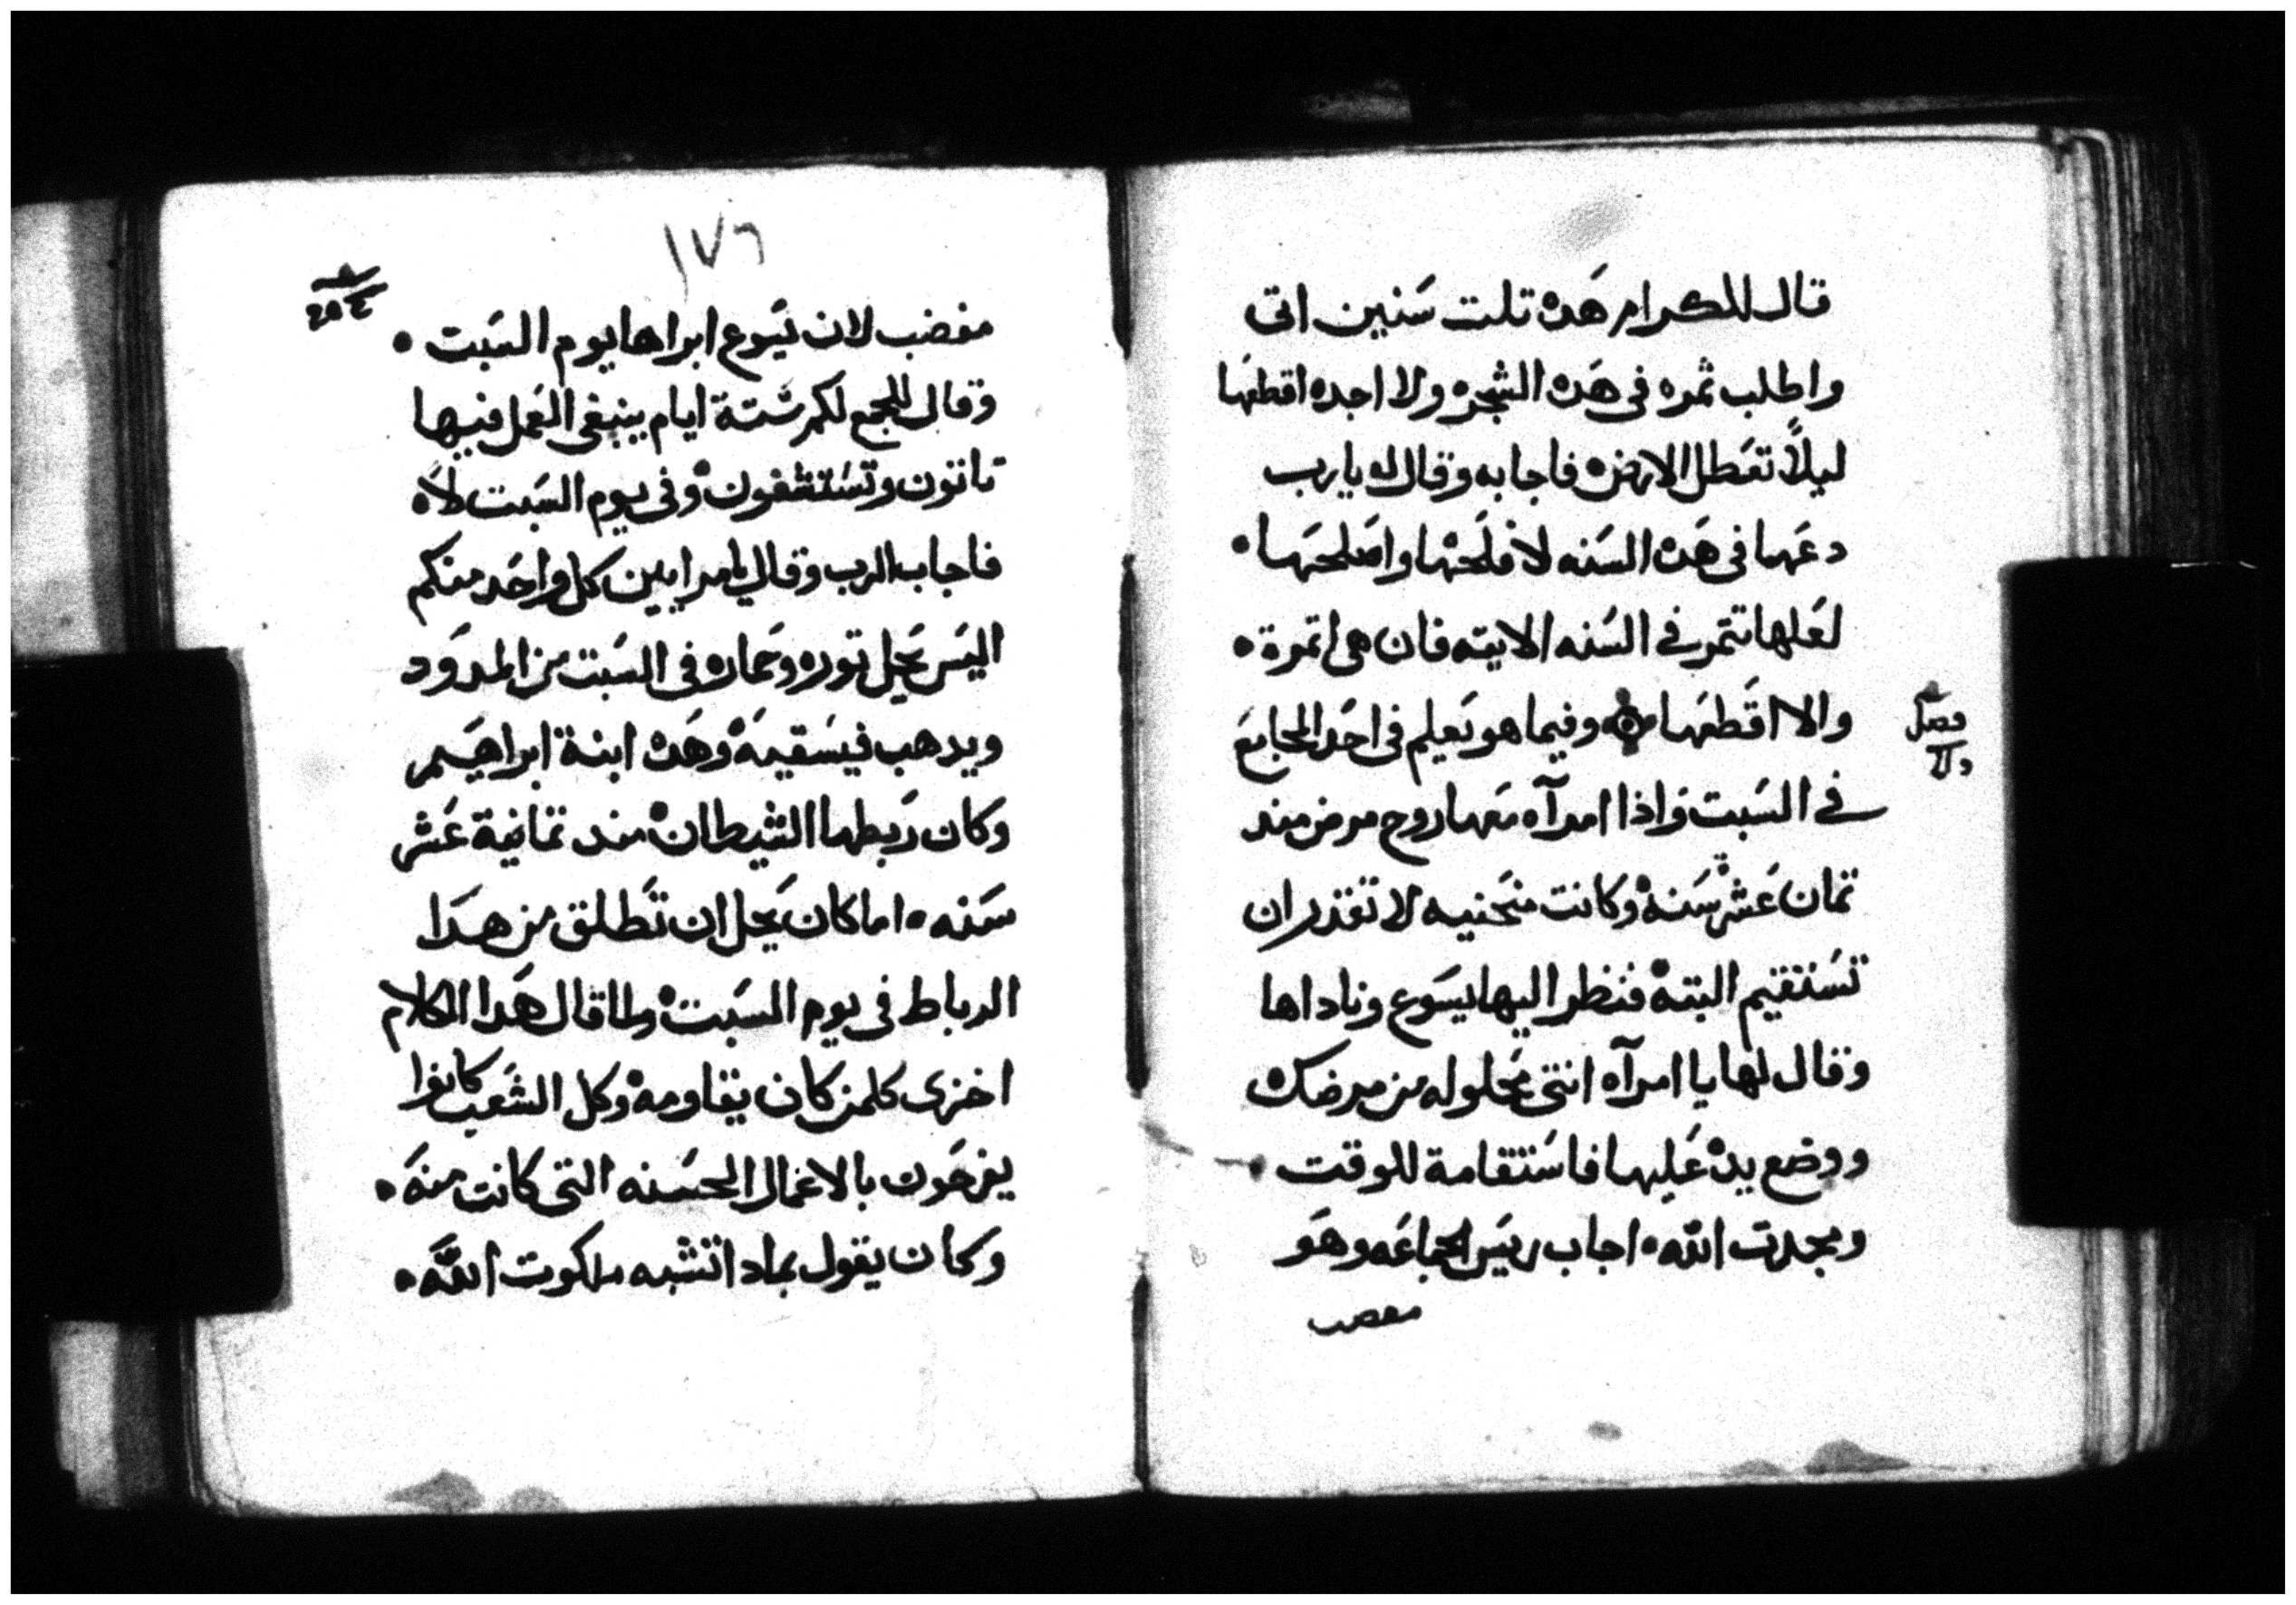 قال للكرام هَده تلت سَنين اتى
واطلب ثمره فى هَده الشجره ولا اجده اقطعَها
ليلاً تعَطل الارض فاجابه وقال له يارب
دعَها فى هَده السَنه لافلَحَها واصَلحَها •
لعَلها تتمر في السَنه الاتيه فان هى اتمرة •
والا اقَطعَها وفيما هو يَعلم فى احَد المجامَع
في السَبت واذا امرآه مَعَها روح مرض مند
تمان عَشر سَنه وكانت منحَنيه لا تقدر ان
تسَتقيم البته فنظر اليها يسَوع وناداها
وقال لها يا امرآه انتى محَلوله من مرضك
ووضع يده عَليها فاسَتقامة للوقت
ومجدت الله • اجاب رييَس الجماعَه وهَو
مغضب
فصل
١٧٦
مغضب لان يسَوع ابراها يوم السَبت •
وقال للجمع لكم سَتة ايام ينبغى العَمل فيها
تاتون وتسَتشفون وفى يوم السَبت لا
فاجاب الرب وقال يا مرايين كل واحَد منكم
اليسَ يَحل توره وحَماره فى السَبت من المدوَد
ويدهب فيسَقيه وهَده ابنة ابراهيَم
وكان رَبطها الشيطان مند تمانية عَشر
سَنه • اما كان يَحل ان تَطلق من هدَا
الرباط فى يوم السَبت ولما قال هَدا الكلام
اخزى كلمن كان يقاومه وكل الشَعب كانوا
يفرحَون بالاعَمال الحسَنه التى كانت منهَ •
وَكان يقول بمادا تشبه ملكوت اللَّه •